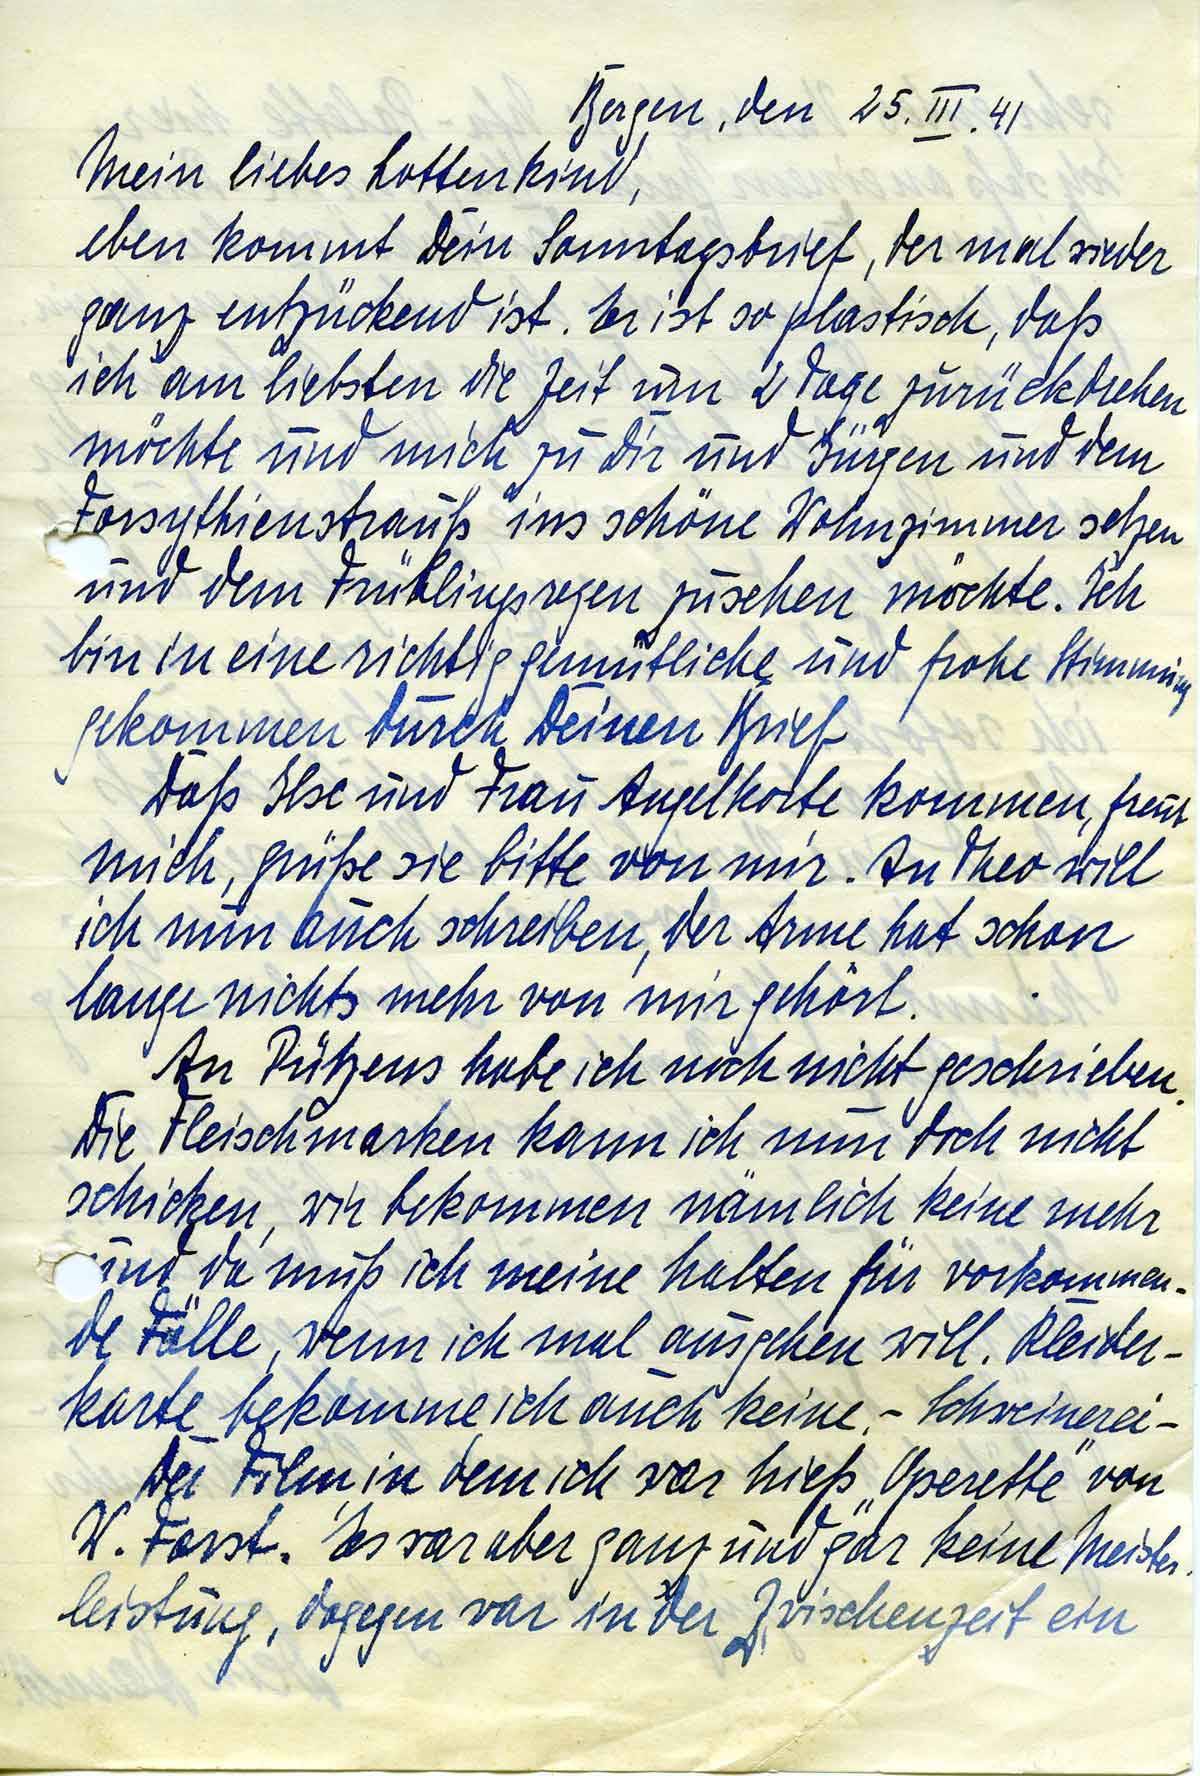 Bergen, den 25. III. 41
Mein liebes Lottenkind,
eben kommt Dein Sonntagsbrief, der mal wieder
ganz entzückend ist. Er ist so plastisch, daß
ich am liebsten die Zeit um 2 Tage zurückdrehen
möchte und mich zu Dir und Jürgen und dem
Forsythienstrauß ins schöne Wohnzimmer setzen
und dem Frühlingsregen zusehen möchte. Ich
bin in eine richtig gemütliche und frohe Stimmung
gekommen durch Deinen Brief
Daß Ilse und Frau Angelkorte kommen, freut
mich, grüße sie bitte von mir. An Theo will
ich nun auch schreiben, der Arme hat schon
lange nichts mehr von mir gehört.
An Pützens habe ich noch nicht geschrieben.
Die Fleischmarken kann ich nun doch nicht
schicken, wir bekommen nämlich keine mehr
und da muß ich meine halten für vorkommen-
de Fälle, wenn ich mal ausgehen will. Kleider-
karte bekomme ich auch keine. - Schweinerei -
Der Film, in dem ich war hieß „Operette" von
W. Forst. Es war aber ganz und gar keine Meister-
leistung, dagegen war in der Zwischenzeit ein